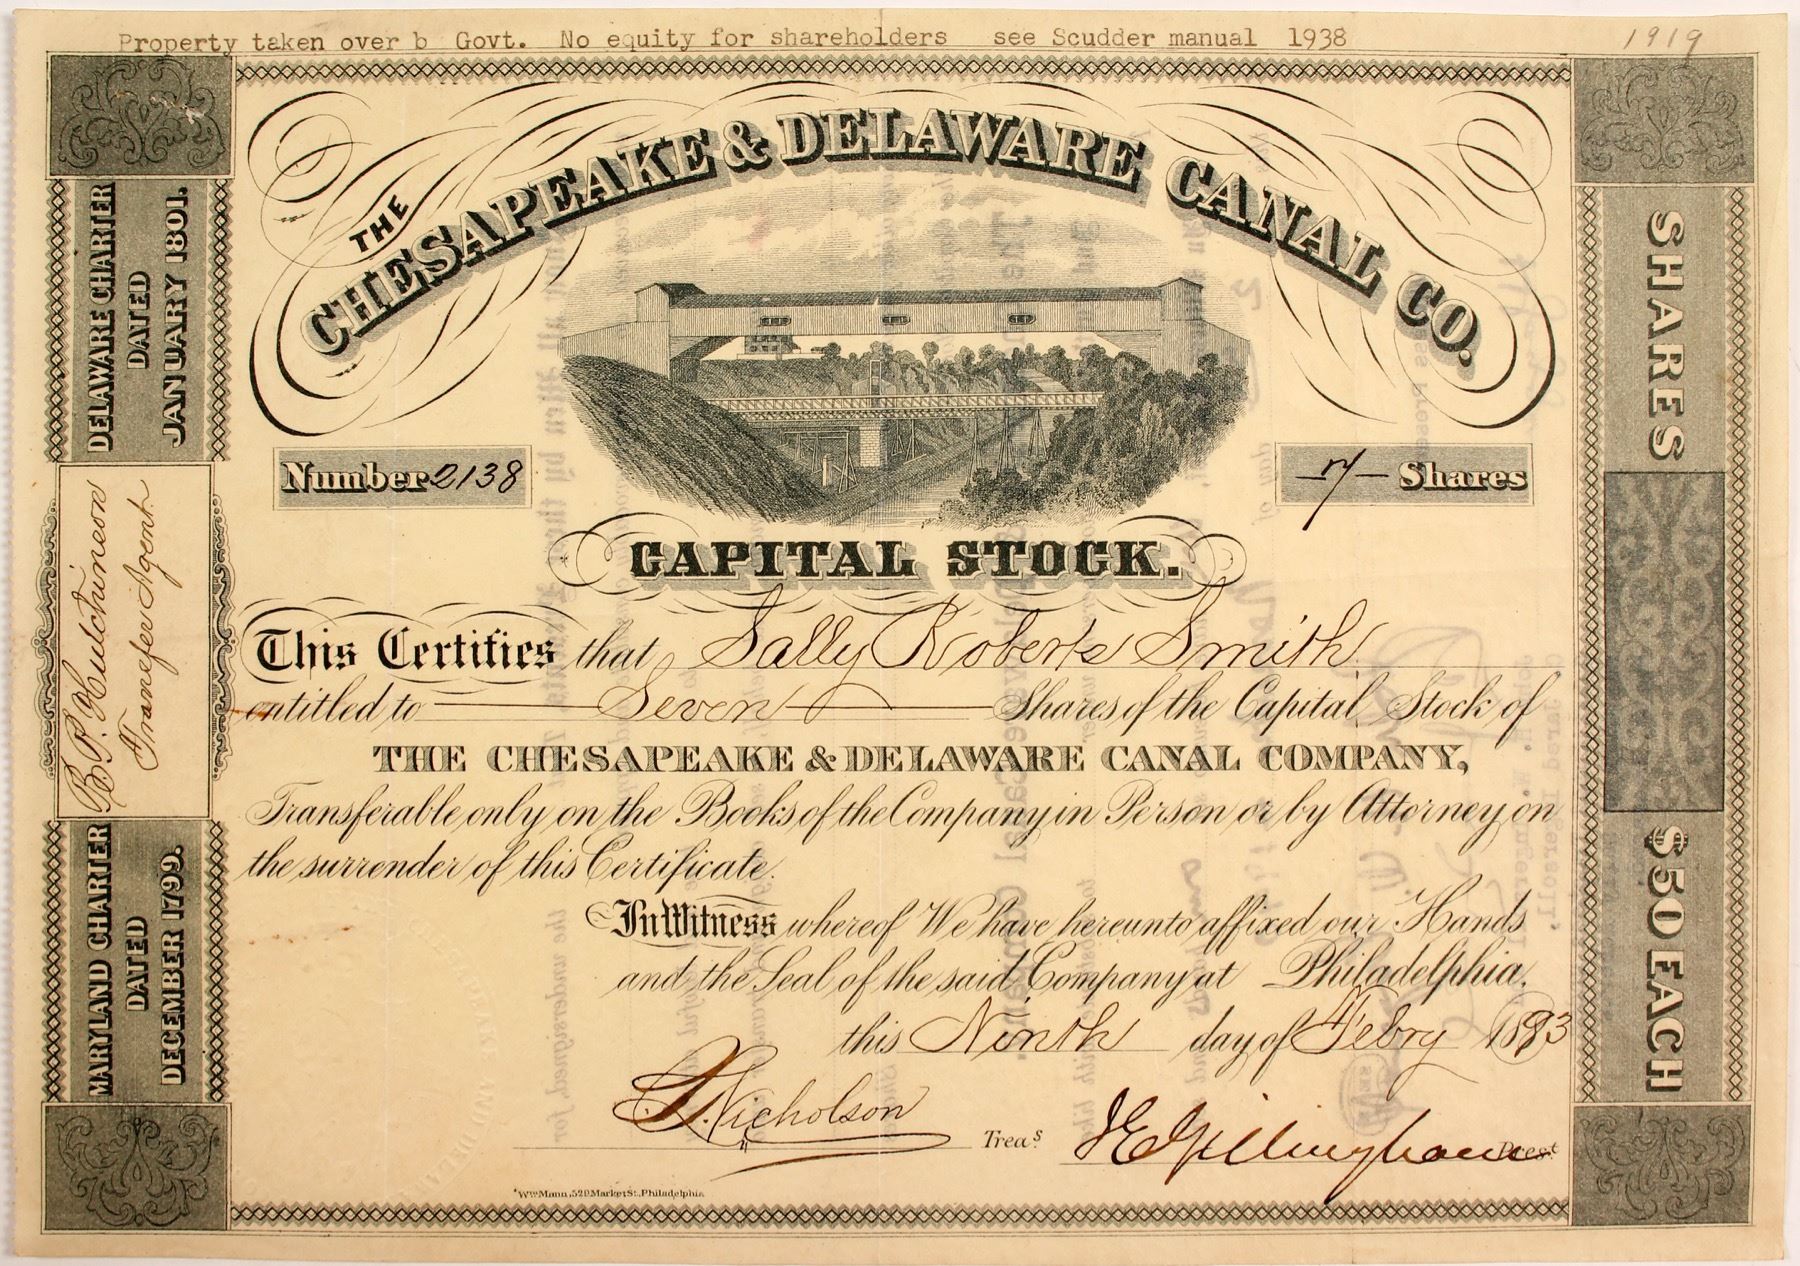 Property taken over b Govt. No equity for shareholders see Scudder manual 1938
1919
THE
CHESAPEAKE & DELAWARE CANAL CO.
DELAWARE CHARTER
DATED
JANUARY 1801.
Number 2138
7 Shares
CAPITAL STOCK.
This Certifies that Sally Roberts Smith
entitled to Seven Shares of the Capital Stock of
THE CHESAPEAKE & DELAWARE CANAL COMPANY,
Transferable only on the Books of the Company in Person or by Attorney on
the surrender of this Certificate.
In Witness whereof We have hereunto affixed our Hands
and the Seal of the said Company at Philadelphia,
this Ninth day of Febry 1893
Nicholson Treas
J E Gillingham Prest
Wm Mann, 529 Market St., Philadelphia
Hutchinson
Transfer Agent
MARYLAND CHARTER
DATED
DECEMBER 1799.
SHARES
$50 EACH